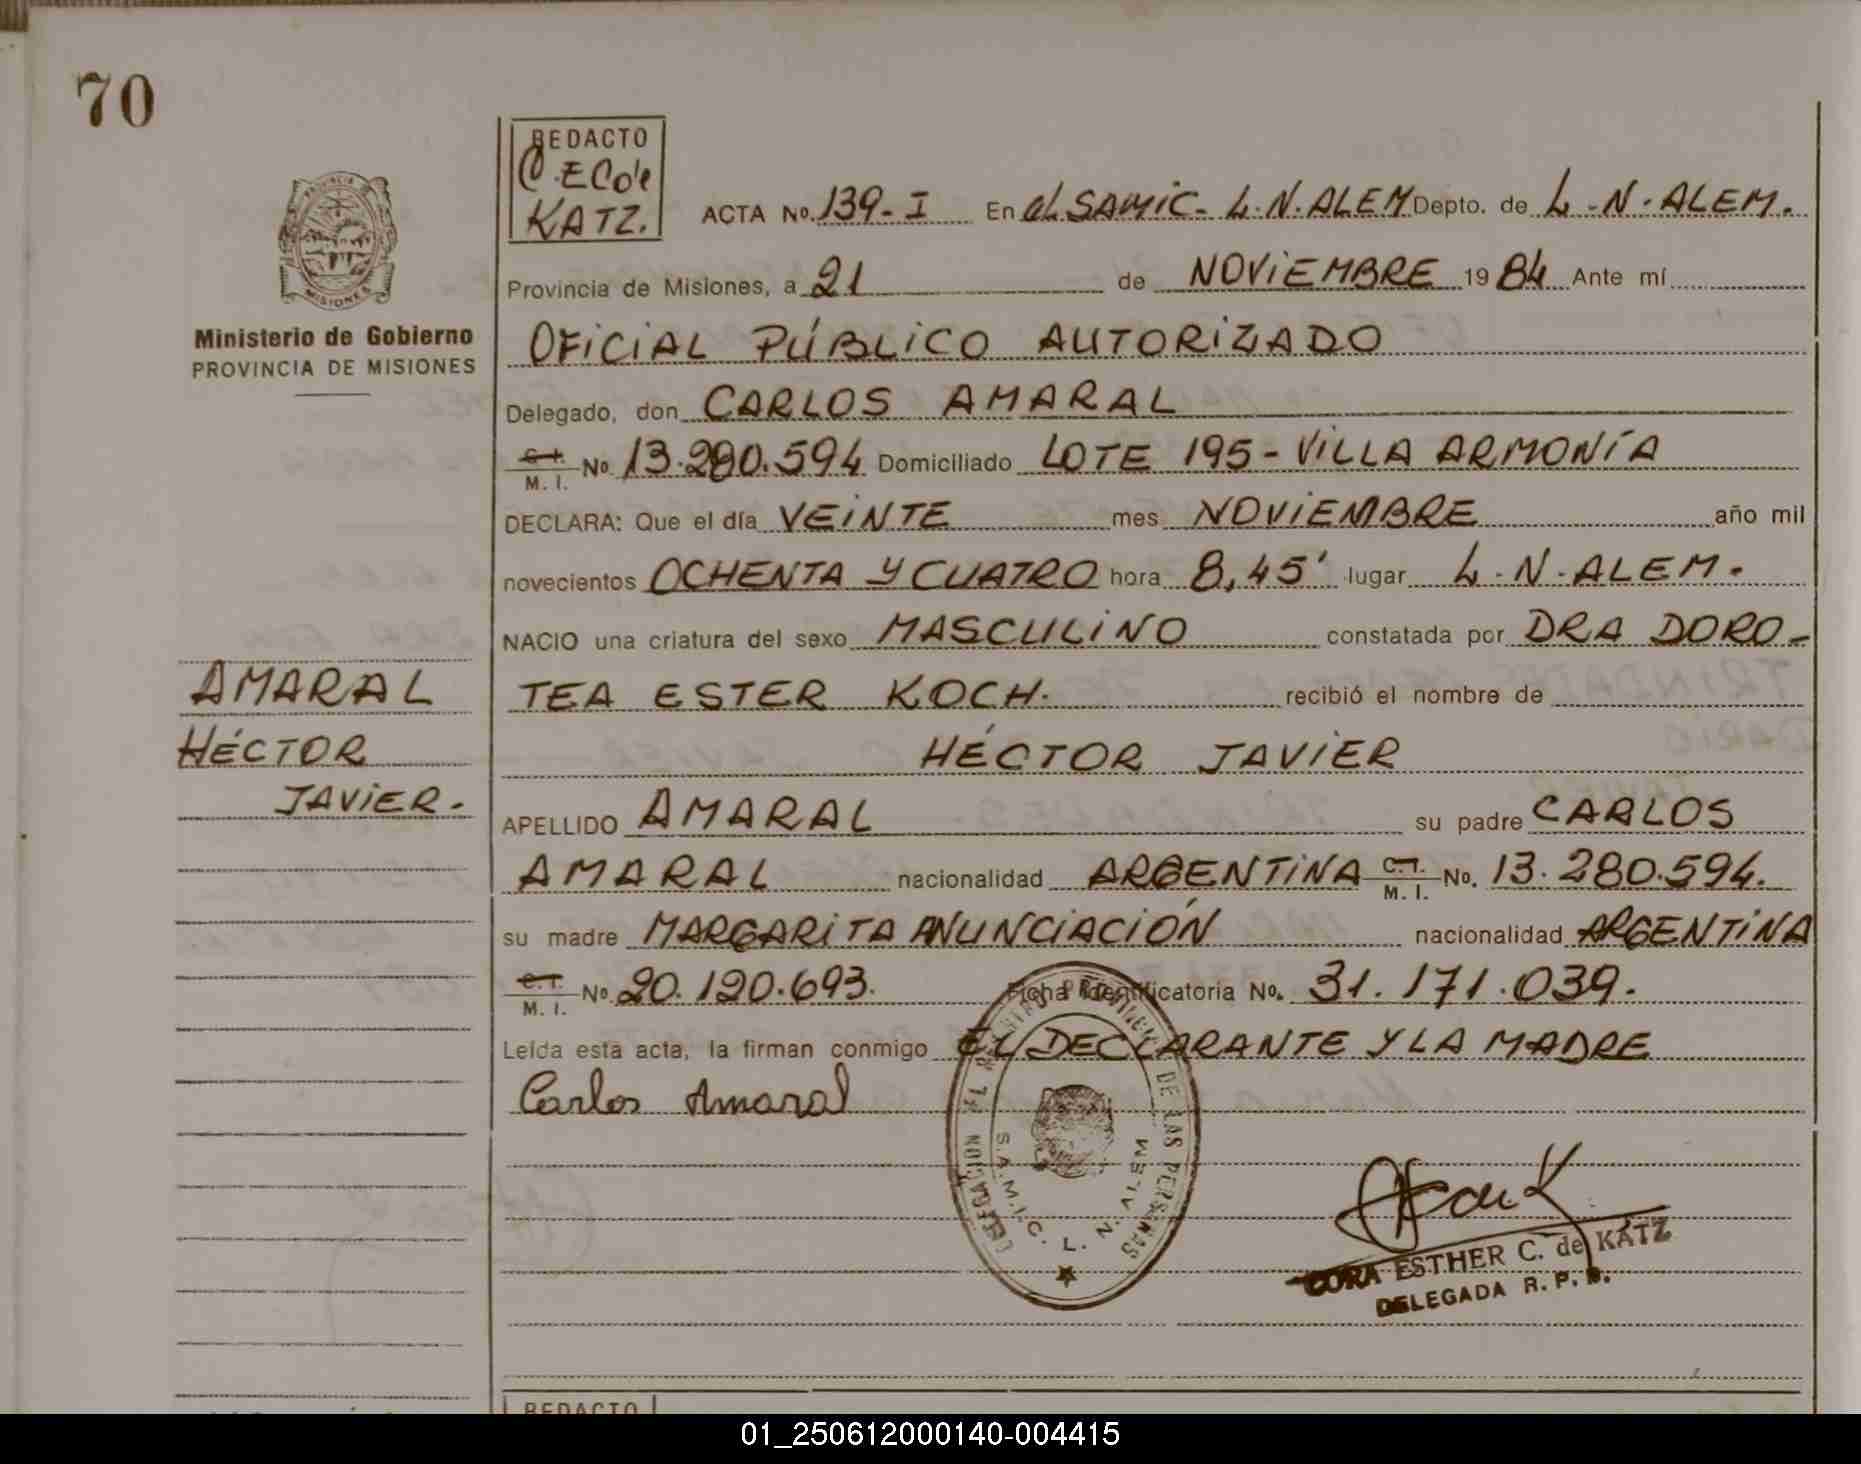 70
REDACTO
C. E C. de
KATZ.
ACTA No. 139-I En el SAMIC - L.N. ALEM Depto. de L.N. ALEM.
Provincia de Misiones, a 21 de NOVIEMBRE 1984 Ante mí
OFICIAL PÚBLICO AUTORIZADO
Ministerio de Gobierno
PROVINCIA DE MISIONES
Delegado, don CARLOS AMARAL
C. I. M. I. No. 13.280.594 Domiciliado LOTE 195 - VILLA ARMONÍA
DECLARA: Que el día VEINTE mes NOVIEMBRE año mil
novecientos OCHENTA Y CUATRO hora 8,45' lugar L.N. ALEM.
NACIO una criatura del sexo MASCULINO constatada por DRA DORO-
TEA ESTER KOCH. recibió el nombre de
HÉCTOR JAVIER
AMARAL
HÉCTOR
JAVIER.
APELLIDO AMARAL su padre CARLOS
AMARAL nacionalidad ARGENTINA C. I. M. I. No. 13.280.594.
su madre MARGARITA ANUNCIACIÓN nacionalidad ARGENTINA
C. I. M. I. No. 20.120.693. Ficha Identificatoria No. 31.171.039.
Leída esta acta, la firman conmigo EL DECLARANTE Y LA MADRE
Carlos Amaral
DE LAS PERSONAS
S.A.M.I.C. L. N. ALEM
CORA ESTHER C. de KATZ
DELEGADA R. P. P.
REDACTO
01_250612000140-004415